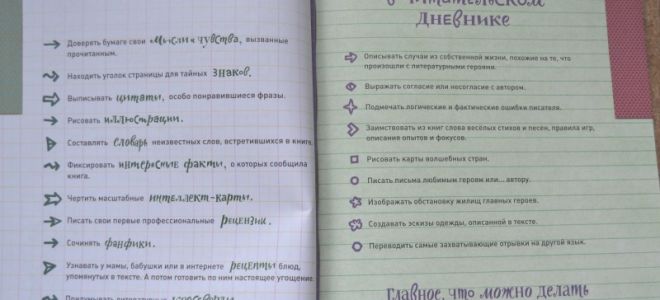 Доверять бумаге свои мысли и чувства, вызванные
прочитанным.
Находить уголок страницы для тайных знаков.
Выписывать цитаты, особо понравившиеся фразы.
Рисовать иллюстрации.
Составлять словарь неизвестных слов, встретившихся в книге.
Фиксировать интересные факты, о которых сообщила
книга.
Чертить масштабные интеллект-карты.
Писать свои первые профессиональные рецензии.
Сочинять фанфики.
Узнавать у мамы, бабушки или в интернете рецепты блюд,
упомянутых в тексте. А потом готовить по ним настоящее угощение.
в читательском
дневнике
Описывать случаи из собственной жизни, похожие на те, что
произошли с литературными героями.
Выражать согласие или несогласие с автором.
Подмечать логические и фактические ошибки писателя.
Заимствовать из книг слова весёлых стихов и песен, правила игр,
описания опытов и фокусов.
Рисовать карты волшебных стран.
Писать письма любимым героям или... автору.
Изображать обстановку жилищ главных героев.
Создавать эскизы одежды, описанной в тексте.
Переводить самые захватывающие отрывки на другой язык.
Главное, что можно делать